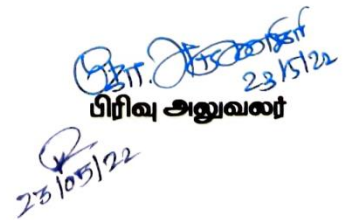 23/5/22
பிரிவு அலுவலர்
23/05/22